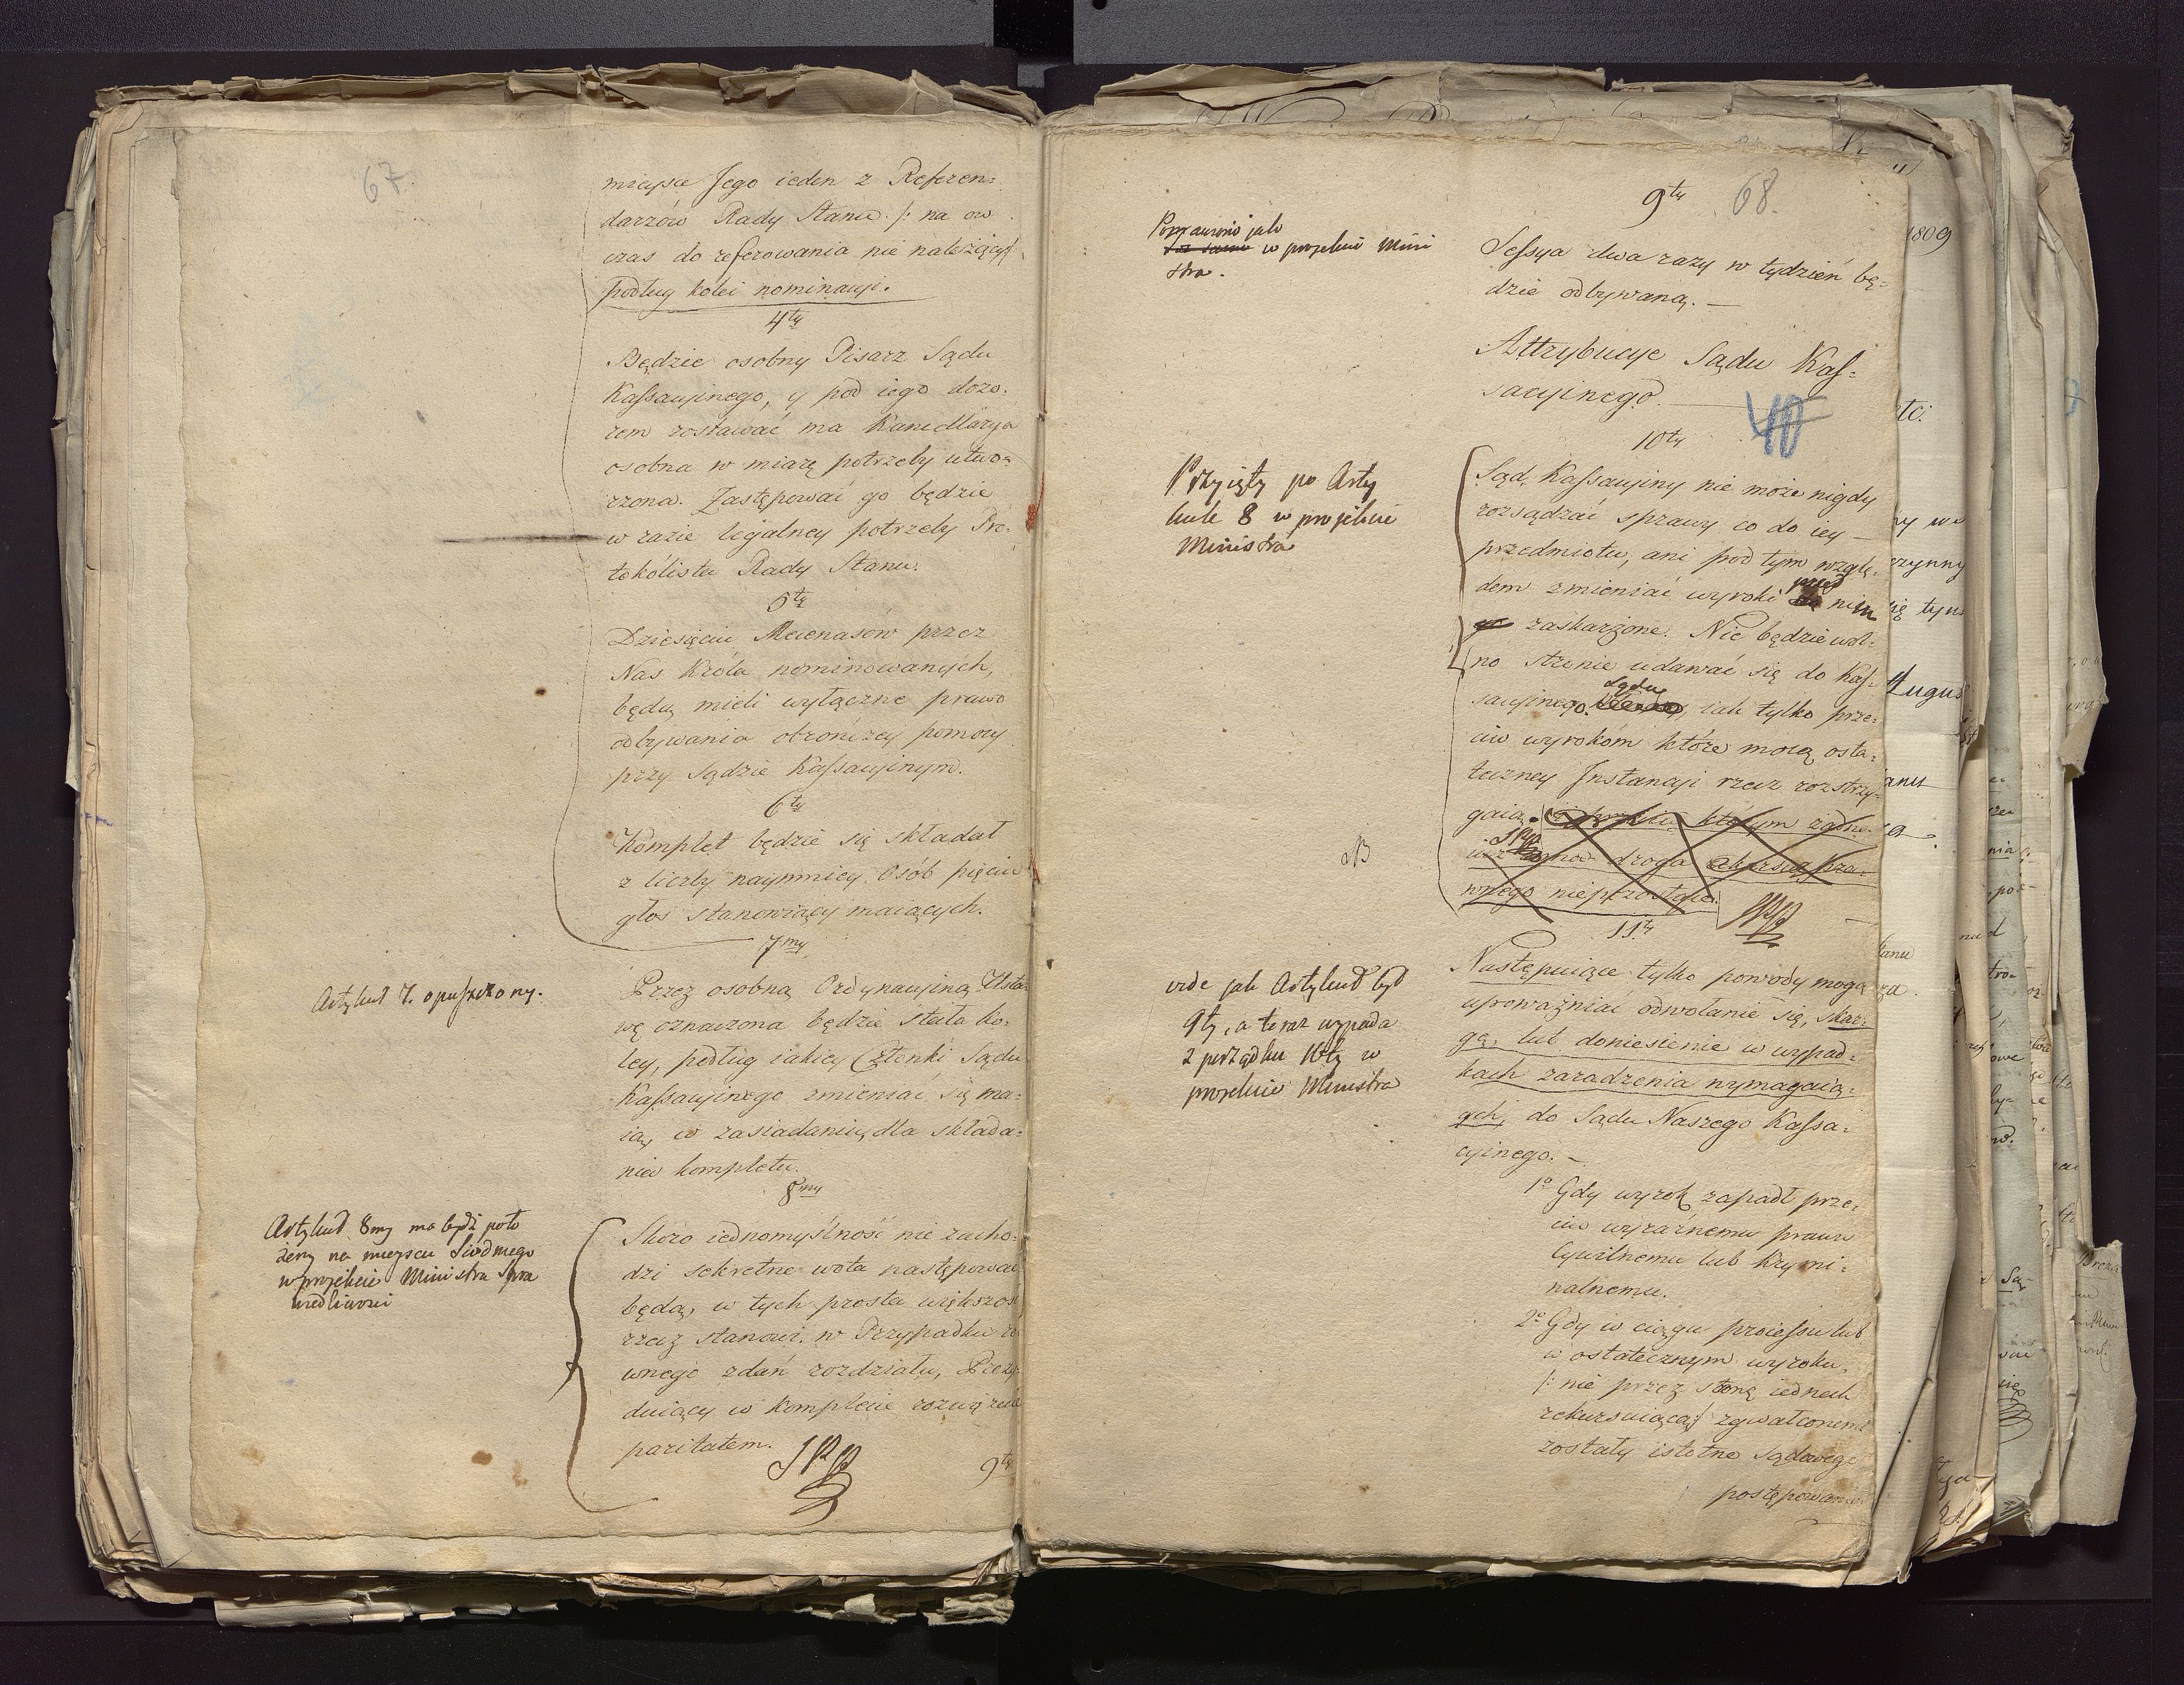 67
mieysce Jego ieden z Referen=
darzów Rady Stanu /: na ow
czas do referowania nie należący:/
podług kolei nominacyi.
4ty
Będzie osobny Pisarz Sądu
Kassacyinego, y pod iego dozo=
rem zostawać ma Kancellarya
osobna w miarę potrzeby utwo=
rzona. Zastępować go będzie
w razie legalney potrzeby Pro=
tokólista Rady Stanu.
5ty
Dziesięciu Mecenasów przez
Nas Króla nominowanych,
będą mieli wyłączne prawo
odbywania obrończey pomocy
przy Sądzie Kassacyinym.
6ty
Komplet będzie się składał
z liczby naymniey Osób pięciu
głos stanowiący maiących.
7my
Artykuł 7. opuszczony.
Przez osobną Ordynacyiną Usta=
wę oznaczona będzie stała ko=
ley, podług iakiey Członki Sądu
Kassacyinego zmieniać się ma=
ią, w zasiadaniu, dla składa=
nia kompletu.
8my
Artykuł 8my ma bydź poło
żony na mieyscu Siódmego
w projekcie Ministra Spra
wiedliwości
Skoro iednomyślność nie zacho=
dzi sekretne wota następować
będą, w tych prosta większość
rzecz stanowi. w Przypadku ró
wnego zdań rozdziału, Prezy
duiący w Komplecie rozwiąże
paritatem.
9ty
68.
9ty
Poprawiono jako
w projekcie Mini
stra.
Sessya dwa razy w tydzień bę=
dzie odbywaną. —
Attrybucye Sądu Kas=
sacyinego. —
40
10ty
Przyięty po Arty
kule 8 w projekcie
Ministra
Sąd Kassacyiny nie może nigdy
rozsądzać sprawy co do iey —
przedmiotu, ani pod tym wzglę=
dem zmieniać wyroki przed nim
zaskarżone. Nie będzie wol=
no stronie udawać się do Kas=
sacyinego Sądu, iak tylko prze=
ciw wyrokom które mocą osta=
teczney Instancyi rzecz rozstrzy=
gaią. którym żadna
droga
wnego niepozostaie.
11ty
vide jak Artykuł był
9ty, a teraz wypada
z porządku 10ty w
projekcie Ministra
Następuiące tylko powody mogą
upoważniać odwołanie się, skar=
gę, lub doniesienie w wypad=
kach zaradzenia wymagaią=
cych, do Sądu Naszego Kassa=
cyinego. —
1o Gdy wyrok zapadł prze=
ciw wyraźnemu prawu
Cywilnemu lub Krymi=
nalnemu.
2o Gdy w ciągu processu lub
w ostatecznym wyroku,
/: nie przez stronę iednak
rekursuiącą:/ zgwałconemi
zostały istotne Sądowego
postępowania
1809